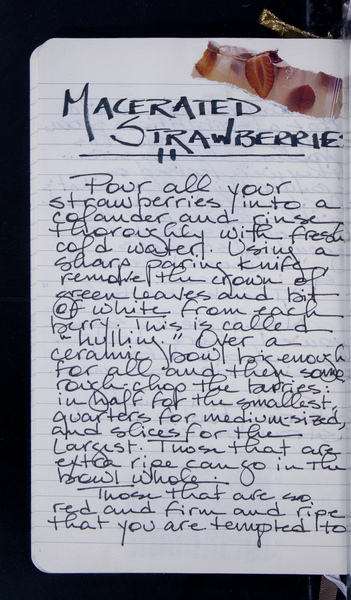 MACERATED
STRAWBERRIE
Pour all your
strawberries into a
colander and rinse
thoroughly with fresh
cold water. Using a
sharp paring knife,
remove the crown of
green leaves and bit
of white from each
berry. This is called
"hulling." Over a
ceramic bowl big enough
for all and then some
rough chop the berries:
in half for the smallest,
quarters for medium sized,
and slices for the
largest. Those that are
extra ripe can go in the
bowl whole.
Those that are so
red and firm and ripe
that you are tempted to